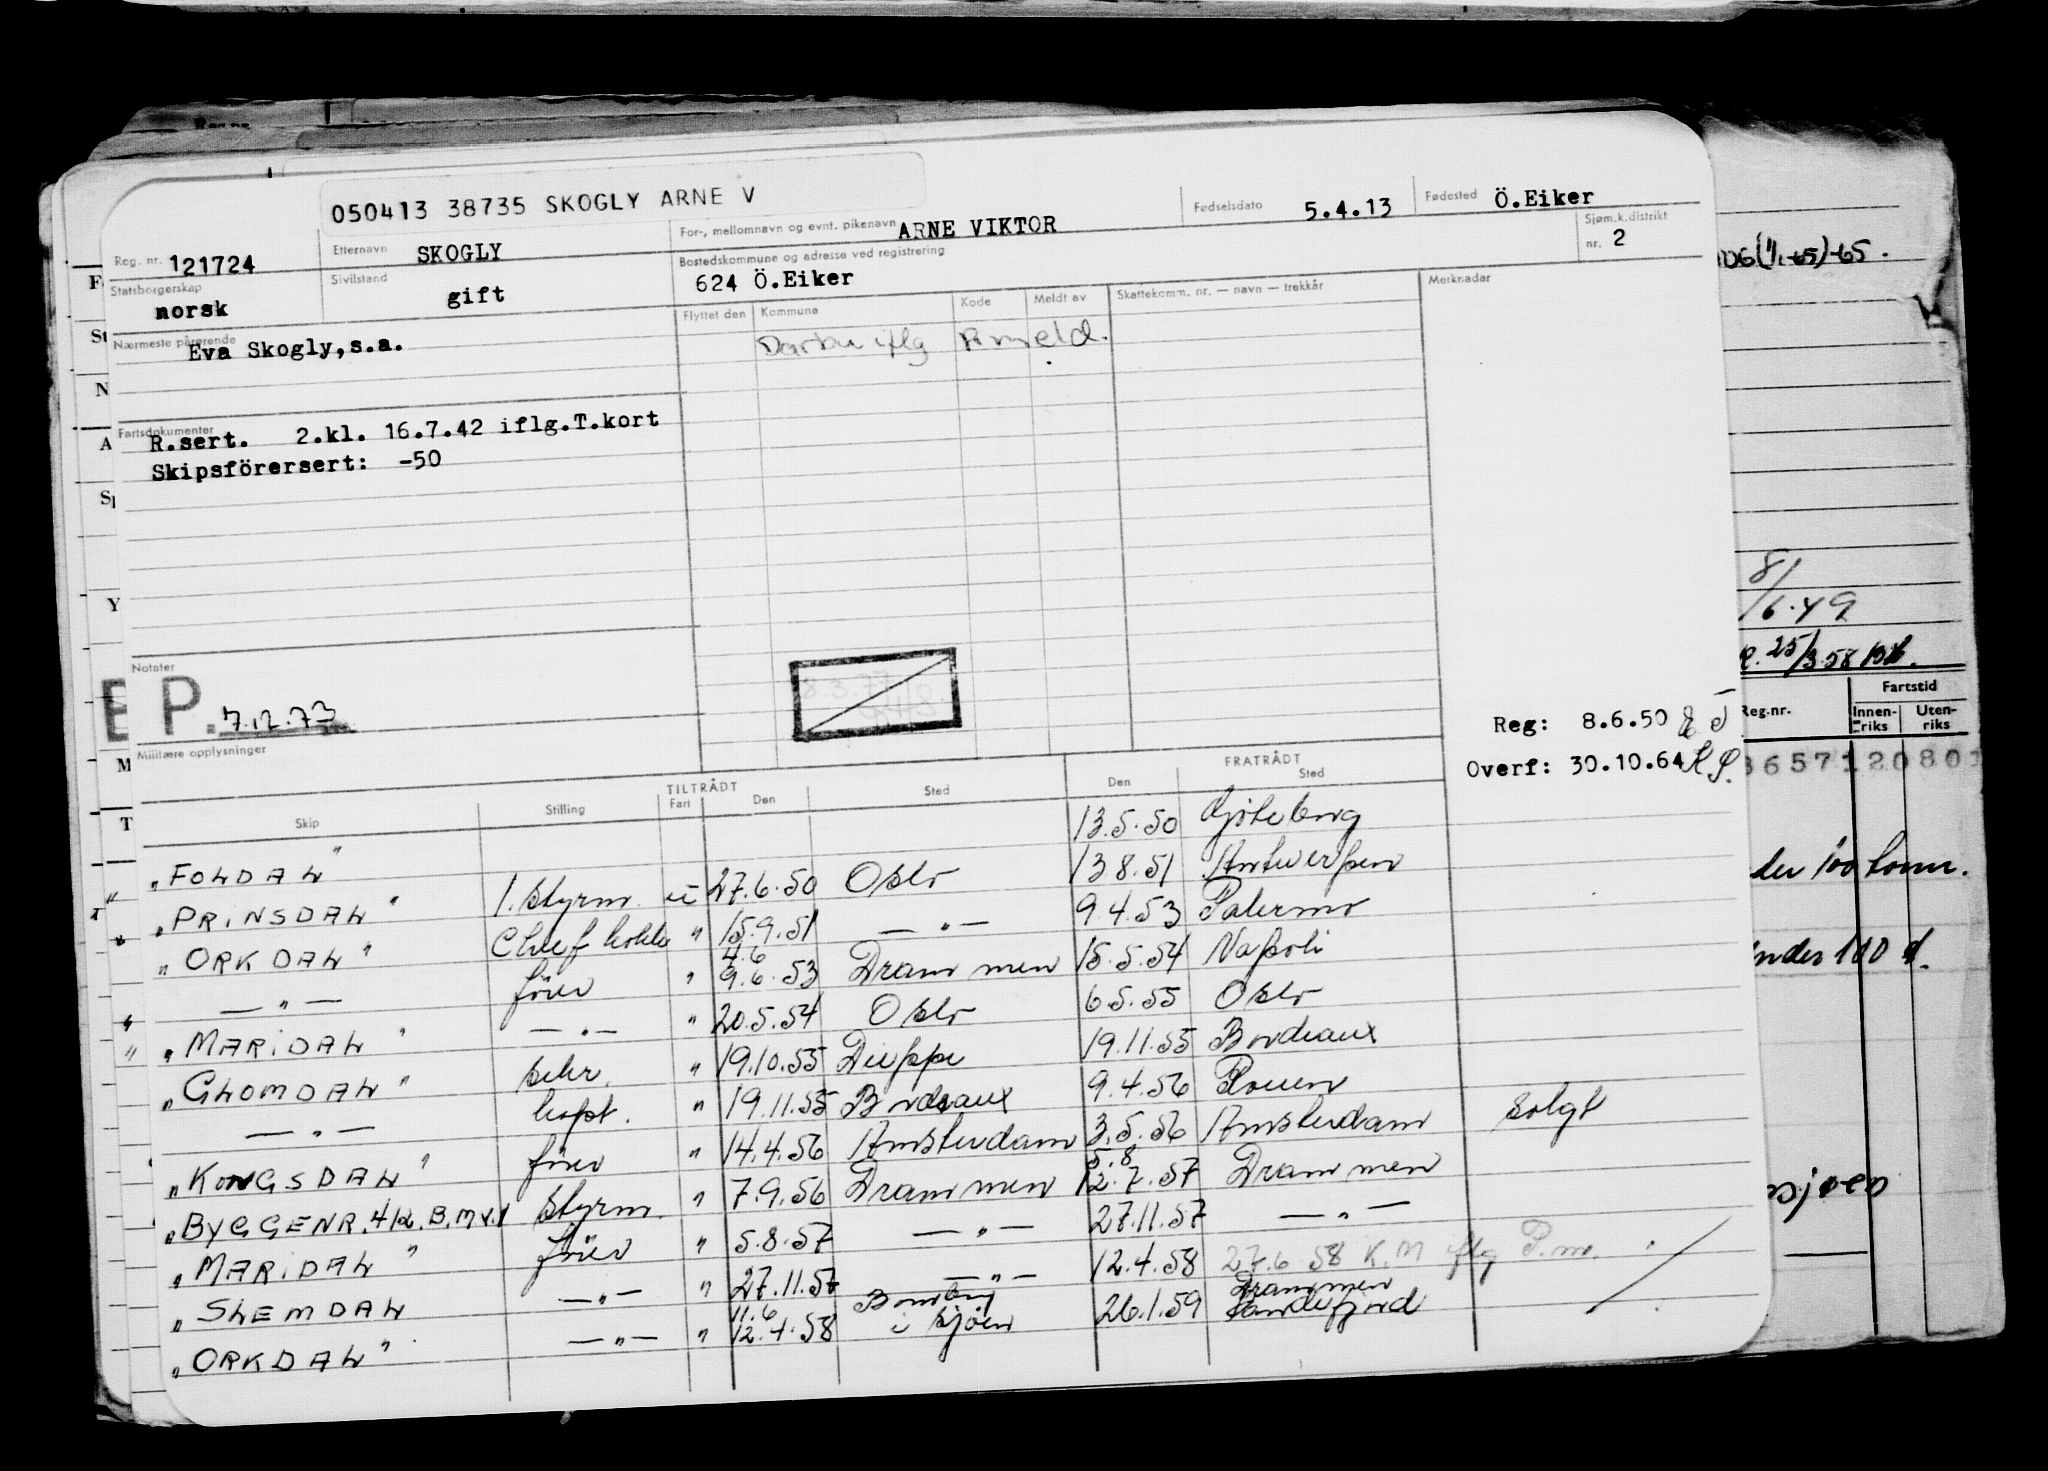 050413 38735 SKOGLY ARNE V
Reg. nr. 121724
Etternavn SKOGLY
For-, mellomnavn og evnt. pikenavn ARNE VIKTOR
Fødselsdato 5.4.13
Fødested Ö.Eiker
Statsborgerskap norsk
Sivilstand gift
Bostedskommune og adresse ved registrering 624 Ö.Eiker
Sjøm.k.distrikt nr. 2
Nærmeste pårørende Eva Skogly,s.a.
Flyttet den Kommune Kode Meldt av Skattekomm. nr. — navn — trekkår Merknader
iflg
Fartsdokumenter
R.sert. 2.kl. 16.7.42 iflg.T.kort
Skipsförersert: -50
Notater
P. 7.12.73
Militære opplysninger
Reg: 8.6.50
Overf: 30.10.64
TILTRÅDT FRATRÅDT
Skip Stilling Fart Den Sted Den Sted
"FOLDAL" 13.5.50 Gøteborg
"PRINSDAL" 1. styrm. u 27.6.50 Oslo 13.8.51 Antwerpen
"ORKDAL" Chief " 15.9.51 — " — 9.4.53 Palermo
— " — förer " 4.6 9.6.53 Drammen 15.5.54 Napoli
"MARIDAL" — " — " 20.5.54 Oslo 6.5.55 Oslo
"GLOMDAL" " 19.10.55 Dieppe 19.11.55 Bordeaux
— " — kapt. " 19.11.55 Bordeaux 9.4.56 Rouen
"KONGSDAL" förer " 14.4.56 Amsterdam 3.5.56 Amsterdam solgt
"BYGGENR. 412. B.M.V." styrm. " 7.9.56 Drammen 5.8 12.7.57 Drammen
"MARIDAL" förer " 5.8.57 — " — 27.11.57 — " —
"SLEMDAL — " — " 27.11.57 — " — 12.4.58 27.6 58 K.M iflg P.m.
"ORKDAL" — " — " 11.6 12.4.58 i sjøen 26.1.59 Drammen Sandefjord
8/6.49
25/3.58
Reg.nr. Fartstid
Innenriks Utenriks
3657120801
under 100 t.